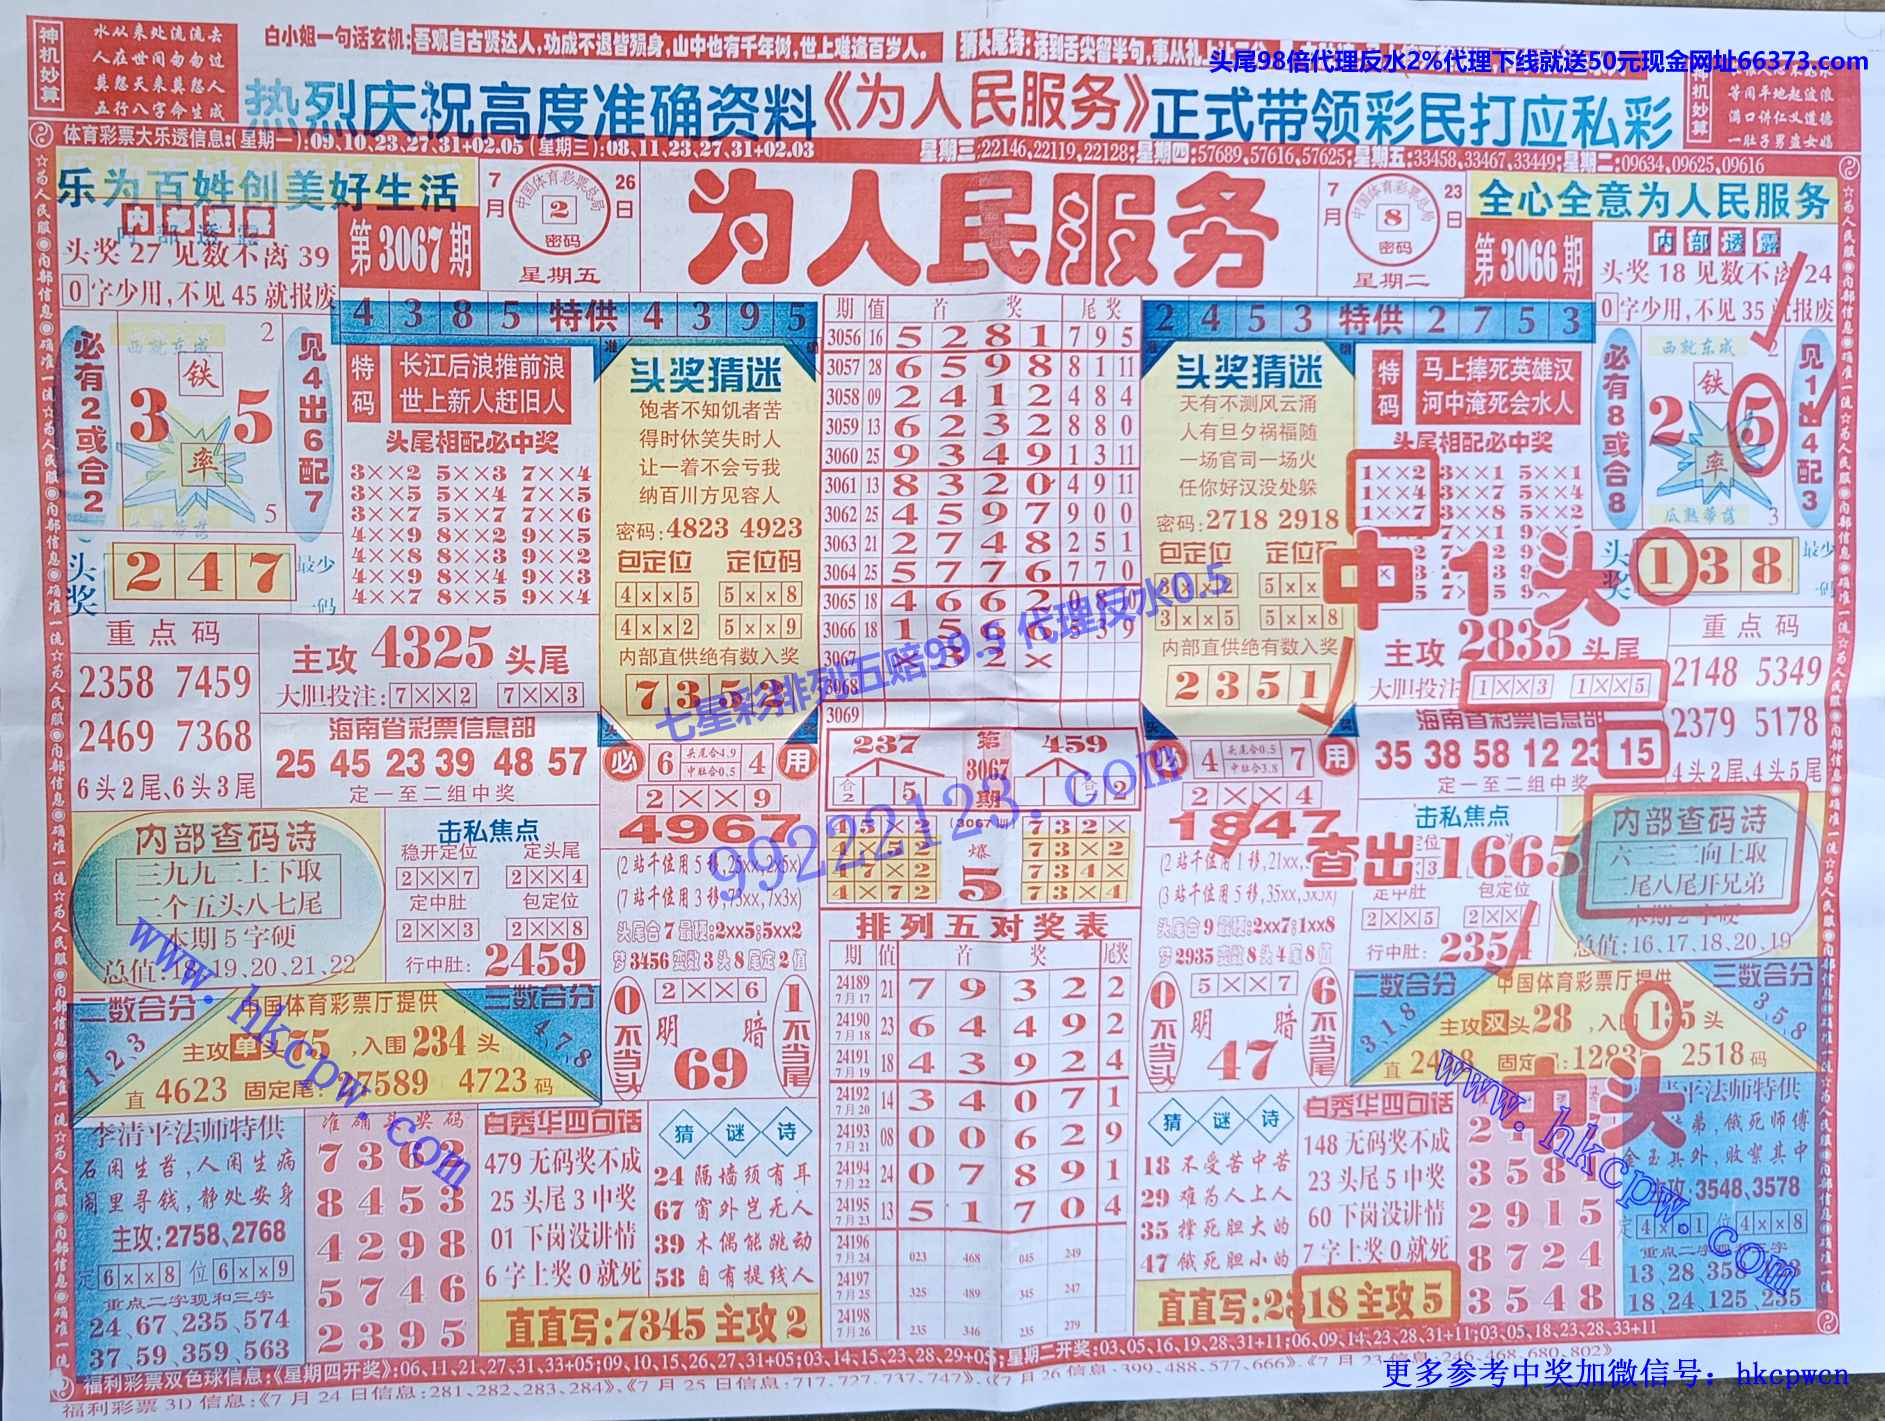 神机妙算
水从来处流流去
人在世间匆匆过
莫怨天来莫怨人
五行八字命生成
白小姐一句话玄机:吾观自古贤达人,功成不退皆殒身,山中也有千年树,世上难逢百岁人。
猜头尾诗:话到舌尖留半句,事从礼
头尾98倍代理反水2%代理下线就送50元现金网址66373.com
热烈庆祝高度准确资料《为人民服务》正式带领彩民打应私彩
神机妙算
等闲平地起波浪
满口讲仁义道德
一肚子男盗女娼
体育彩票大乐透信息:(星期一):09,10,23,27,31+02.05 (星期三):08,11,23,27,31+02.03
星期三:22146,22119,22128;星期四:57689,57616,57625;星期五:33458,33467,33449;星期二:09634,09625,09616
乐为百姓创美好生活
内部透露
头奖 27 见数不离 39
0字少用,不见 45 就报废
第3067期
7月26日
中国体育彩票总局
2
密码
星期五
为人民服务
7月23日
中国体育彩票总局
8
密码
星期二
第3066期
全心全意为人民服务
内部透露
头奖 18 见数不离 24
0字少用,不见 35 就报废
4 3 8 5 特供 4 3 9 5
必有2或合2
2
铁
3 5
率
5
见4出6配7
特码
长江后浪推前浪
世上新人赶旧人
头尾相配必中奖
3××2 5××3 7××4
3××5 5××4 7××5
3××7 5××7 7××6
4××9 8××2 9××5
4××8 8××3 9××2
4××9 8××4 9××3
4××7 8××5 9××4
头奖
2 4 7
最少一码
头奖猜迷
饱者不知饥者苦
得时休笑失时人
让一着不会亏我
纳百川方见容人
密码:4823 4923
包定位 定位码
4××5 5××8
4××2 5××9
内部直供绝有数入奖
7 3 5 2
重点码
2358 7459
2469 7368
6头2尾、6头3尾
主攻 4325 头尾
大胆投注: 7××2 7××3
海南省彩票信息部
25 45 23 39 48 57
定一至二组中奖
必 6 头尾合4.9 中肚合0.5 4 用
2××9
4967
(2 站千位用 5 移,25xx,2x5x)
(7 站千位用 3 移,73xx,7x3x)
头尾合 7 最硬:2xx5;5xx2
梦 3456 变数 3 头 8 尾定 2 值
内部查码诗
三九九二上下取
二个五头八七尾
本期 5 字硬
总值:18、19、20、21、22
击私焦点
稳开定位 定头尾
2××7 2××4
定中肚 包定位
2××3 2××8
行中肚: 2459
0不当头
2××6
明 暗
69
1不当尾
二数合分
1、2、3
中国体育彩票厅提供
主攻单头75,入围 234 头
直 4623 固定尾:17589 4723 码
三数合分
4、7、8
李清平法师特供
石闲生苔,人闲生病
闹里寻钱,静处安身
主攻:2758、2768
定 6××8 位 6××9
重点二字现和三字
24、67、235、574
37、59、359、563
准确头奖码
8 4 5 3
4 2 9 8
5 7 4 6
2 3 9 5
白秀华四句话
479 无码奖不成
25 头尾 3 中奖
01 下岗没讲情
6 字上奖 0 就死
猜谜诗
24 隔墙须有耳
67 窗外岂无人
39 木偶能跳动
58 自有提线人
直直写:7345 主攻 2
期 值 首奖 尾奖
3056 16 5 2 8 1 7 9 5
3057 28 6 5 9 8 8 1 11
3058 09 2 4 1 2 4 8 4
3059 13 6 2 3 2 8 8 0
3060 25 9 3 4 9 1 3 11
3061 13 8 3 2 0 4 9 11
3062 25 4 5 9 7 9 0 0
3063 21 2 7 4 8 2 5 1
3064 25 5 7 7 6 7 7 0
3065 18 4 6 6 2 0 8
3066 18 1 5 6 6 5 3 9
3067 × 3 2 ×
3068
3069
七星彩排列五赔99.5 代理反水0.5
99222123.com
237 第3067期 459
合2 5 合 2
45×2 (3067期) 732×
4×52 爆 73×2
47×2 5 734×
4×72 73×4
排列五对奖表
期 值 首奖 尾奖
24189 7月17 21 7 9 3 2 2
24190 7月18 23 6 4 4 9 2
24191 7月19 18 4 3 9 2 4
24192 7月20 14 3 4 0 7 1
24193 7月21 08 0 0 6 2 9
24194 7月22 24 0 7 8 9 1
24195 7月23 13 5 1 7 0 4
24196 7月24 023 468 045 249
24197 7月25 325 489 345 247
24198 7月26 235 346 235 279
2 4 5 3 特供 2 7 5 3
头奖猜迷
天有不测风云涌
人有旦夕祸福随
一场官司一场火
任你好汉没处躲
密码:2718 2918
包定位
3××2 5××
3××5 5××8
内部直供绝有数入奖
2 3 5 1
特码
马上捧死英雄汉
河中淹死会水人
头尾相配必中奖
1××2 3××1 5××1
1××4 3××7 5××4
1××7 3××8 5××7
中1头
必有8或合8
西就东成
2
铁
2 5
率
瓜熟蒂落
3
见1出4配3
头奖
1 3 8
最少一码
主攻 2835 头尾
大胆投注: 1××3 1××5
海南省彩票信息部
35 38 58 12 23 15
定一至二组中奖
重点码
2148 5349
2379 5178
4头2尾、4头5尾
必 4 头尾合0.5 中肚合3.8 7 用
2××4
1847
(2 站千位用 1 移,21xx,
(3 站千位用 5 移,35xx,3x5x)
头尾合 9 最硬:2xx7;1xx8
梦 2935 变数 8 头 4 尾 8 值
击私焦点
查出1665
定中肚 包定位
2××5
行中肚: 2354
内部查码诗
六二三二向上取
二尾八尾开兄弟
本期 2 字硬
总值:16、17、18、20、19
0不当头
5××7
明 暗
47
6不当尾
二数合分
3、1、8
中国体育彩票厅提供
主攻双头28,入围 135 头
2518 码
三数合分
3、5、8
中头
猜谜诗
18 不受苦中苦
29 难为人上人
35 撑死胆大的
47 饿死胆小的
白秀华四句话
148 无码奖不成
23 头尾 5 中奖
60 下岗没讲情
7 字上奖 0 就死
18 主攻 5
2 9 1 5
8 7 2 4
3 5 4 8
平法师特供
弟,饿死师傅
金玉其外,败絮其中
主攻:3548、3578
定 4××1 位 4××8
18、24、125、235
www.hkcpw.com
www.hkcpw.com
福利彩票双色球信息:《星期四开奖》:06,11,21,27,31,33+05;09,10,15,26,27,31+05;03,14,15,23,28,29+05;星期二开奖:03,05,16,19,28,31+11;06,09,14,23,28,31+11;03,05,18,23,28,33+11
福利彩票 3D 信息:《7 月 24 日信息:281,282,283,284》、《7 月 25 日信息:717,727,737,747》、《7 月 26 日信息:399,488,577,666》、《7 月 23 日信息:246,468,680,802》
更多参考中奖加微信号：hkcpwcn